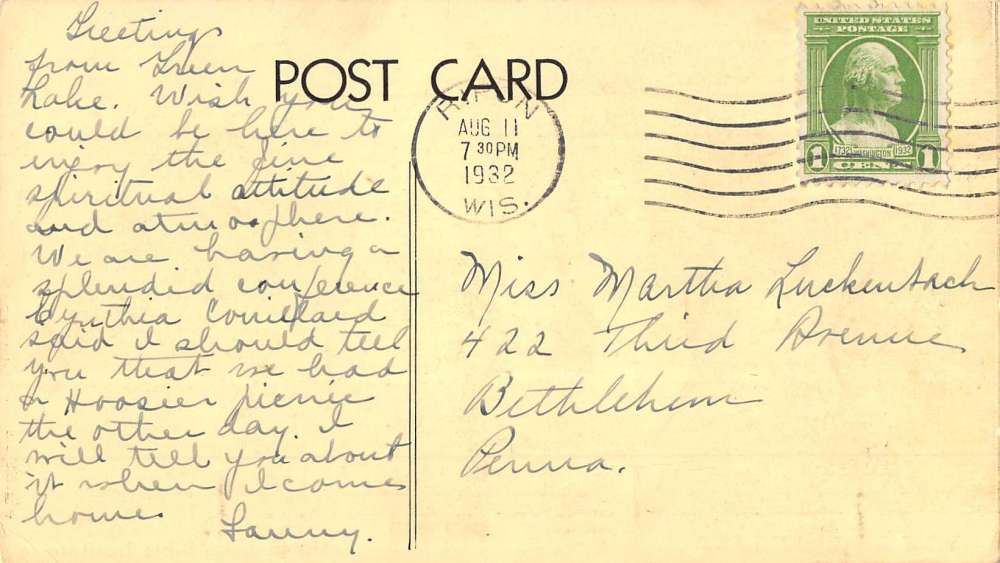 Greetings
from Green
Lake. Wish you
could be here to
enjoy the fine
spiritual attitude
and atmosphere.
We are having a
splendid conference
Cynthia
said I should tell
you that we had
a Hoosier picnic
the other day. I
will tell you about
it when I come
home.
POST CARD
RIPON
AUG 11
7 30 PM
1932
WIS.
UNITED STATES
POSTAGE
1732 WASHINGTON 1932
1 CENT 1
Miss Martha Luckenbach
422 Third Avenue
Bethlehem
Penna.